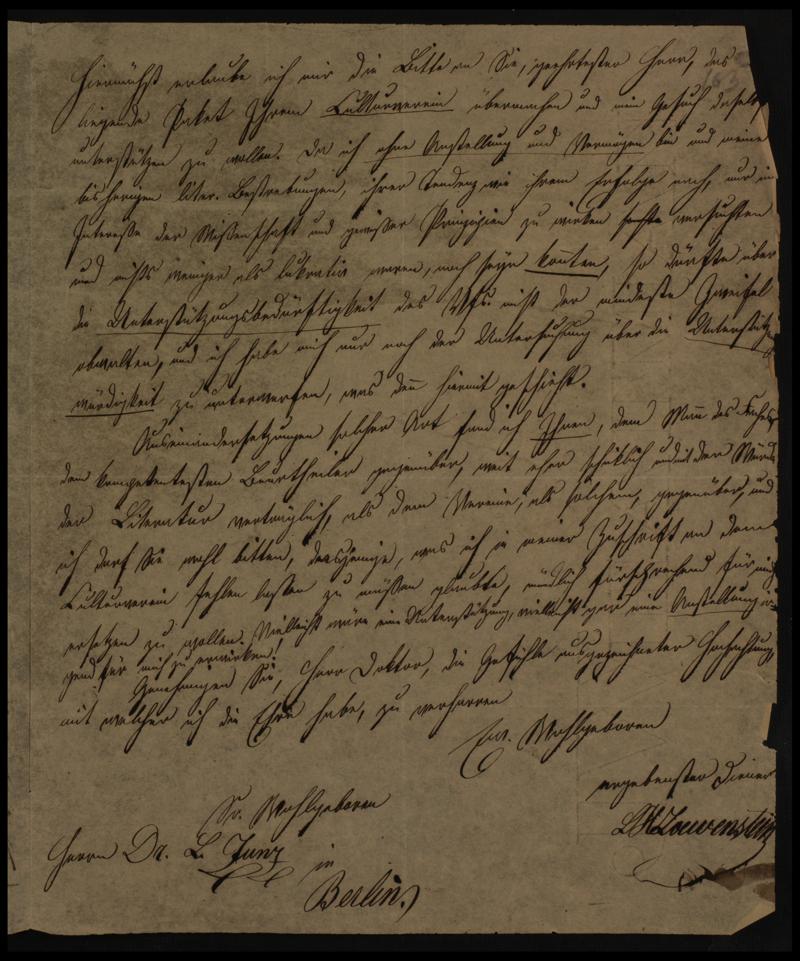 Hiernächst erlaube ich mir die Bitte an Sie, geehrtester Herr, das
liegende Paket Ihrem Culturverein übermachen und mein Gesuch daselbst
unterstützen zu wollen. Da ich ohne Anstellung und Vermögen bin und meine
bisherigen liter. Bestrebungen, ihrer Tendenz wie ihrem Erfolge nach, nur im
Interesse der Wissenschaft und gewisser Prinzipien zu wirken suchte versuchten
und nichts weniger als lukrativ waren, noch seyn konnten, so dürfte über
die Unterstützungsbedürftigkeit des Vfs. nicht der mindeste Zweifel
obwalten, und ich habe mich nur noch der Untersuchung über die Unterstütz
würdigkeit zu unterwerfen, was denn hiermit geschieht.
Auseinandersetzungen solcher Art fand ich Ihnen, dem Mann des Faches
dem kompetentesten Beurtheiler gegenüber, weit eher schicklich und mit der Würde
der Literatur verträglich, als dem Vereine, als solchem, gegenüber, und
ich darf Sie wohl bitten, dasjenige, was ich in meiner Zuschrift an dem
Culturverein fehlen lassen zu müssen glaubte, mündlich fürsprechend für mich
ersetzen zu wollen. Vielleicht wäre eine Unterstützung, vielleicht gar eine Anstellung
für mich zu erwirken.
Genehmigen Sie, Herr Doktor, die Gefühle ausgezeichneter Hochachtung,
mit welcher ich die Ehre habe, zu verharren
Ew. Wohlgeboren
ergebenster Diener
LHLoewenstein
Sr. Wohlgeboren
Herrn Dr. L. Zunz
in
Berlin.